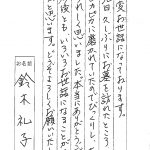 変お世話になっております。
日久しぶりにお墓を訪れたところ
ピカピカに磨かれていたのでびっくりし
れしく思いました。本当にありがとう
後とも、いろいろお世話になることが
と思います。どうぞよろしくお願い
お名前 鈴木礼子